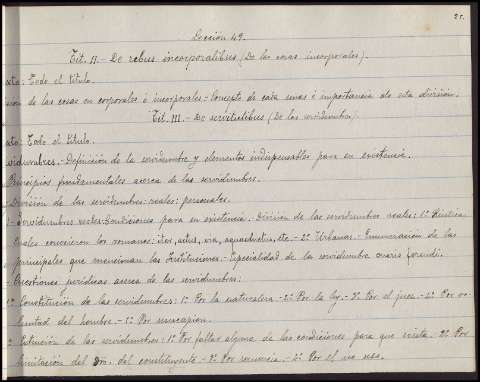 25.
Lección 49.
Tit. II.- De rebus incorporalibus (De las cosas incorporales).
exto: Todo el título.
sion de las cosas en corporales é incorporales.- Concepto de cada una é importancia de esta división.
Tit. III.- De servitutibus (De las servidumbres)
exto: Todo el título.
vidumbres.- Definición de la servidumbre y elementos indispensables para su existencia.
Principios fundamentales acerca de las servidumbres.
División de las servidumbres: reales: personales.
Servidumbres reales: Condiciones para su existencia. División de las servidumbres reales: 1º Rústicas
cuales conocieron los romanos: iter, actus, via, aquaeductus, etc.- 2º Urbanas.- Enumeración de las
principales que mencionan las Instituciones.- Especialidad de la servidumbre oneris ferendi.
Cuestiones jurídicas acerca de las servidumbres:
1º Constitución de las servidumbres: 1º Por la naturaleza.- 2º Por la ley.- 3º Por el juez.- 4º Por vo-
luntad del hombre.- 5º Por usucapion.
Extinción de las servidumbres: 1º Por faltar alguna de las condiciones para que exista. 2º Por
limitación del del constituyente.- 3º Por renuncia.- 4º Por el no uso.